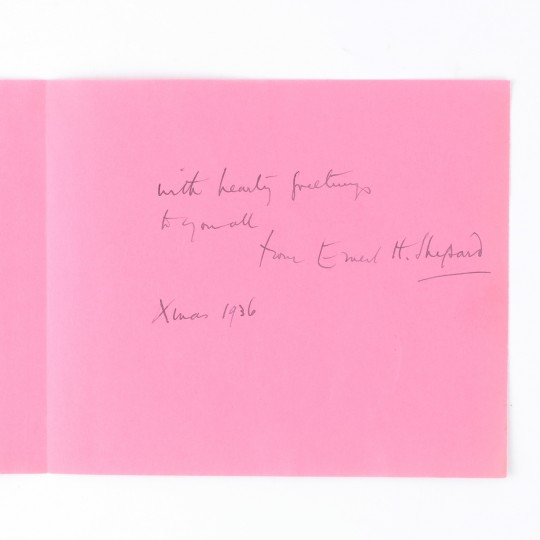 with hearty greetings
to you all
from Ernest H. Shepard
Xmas 1936